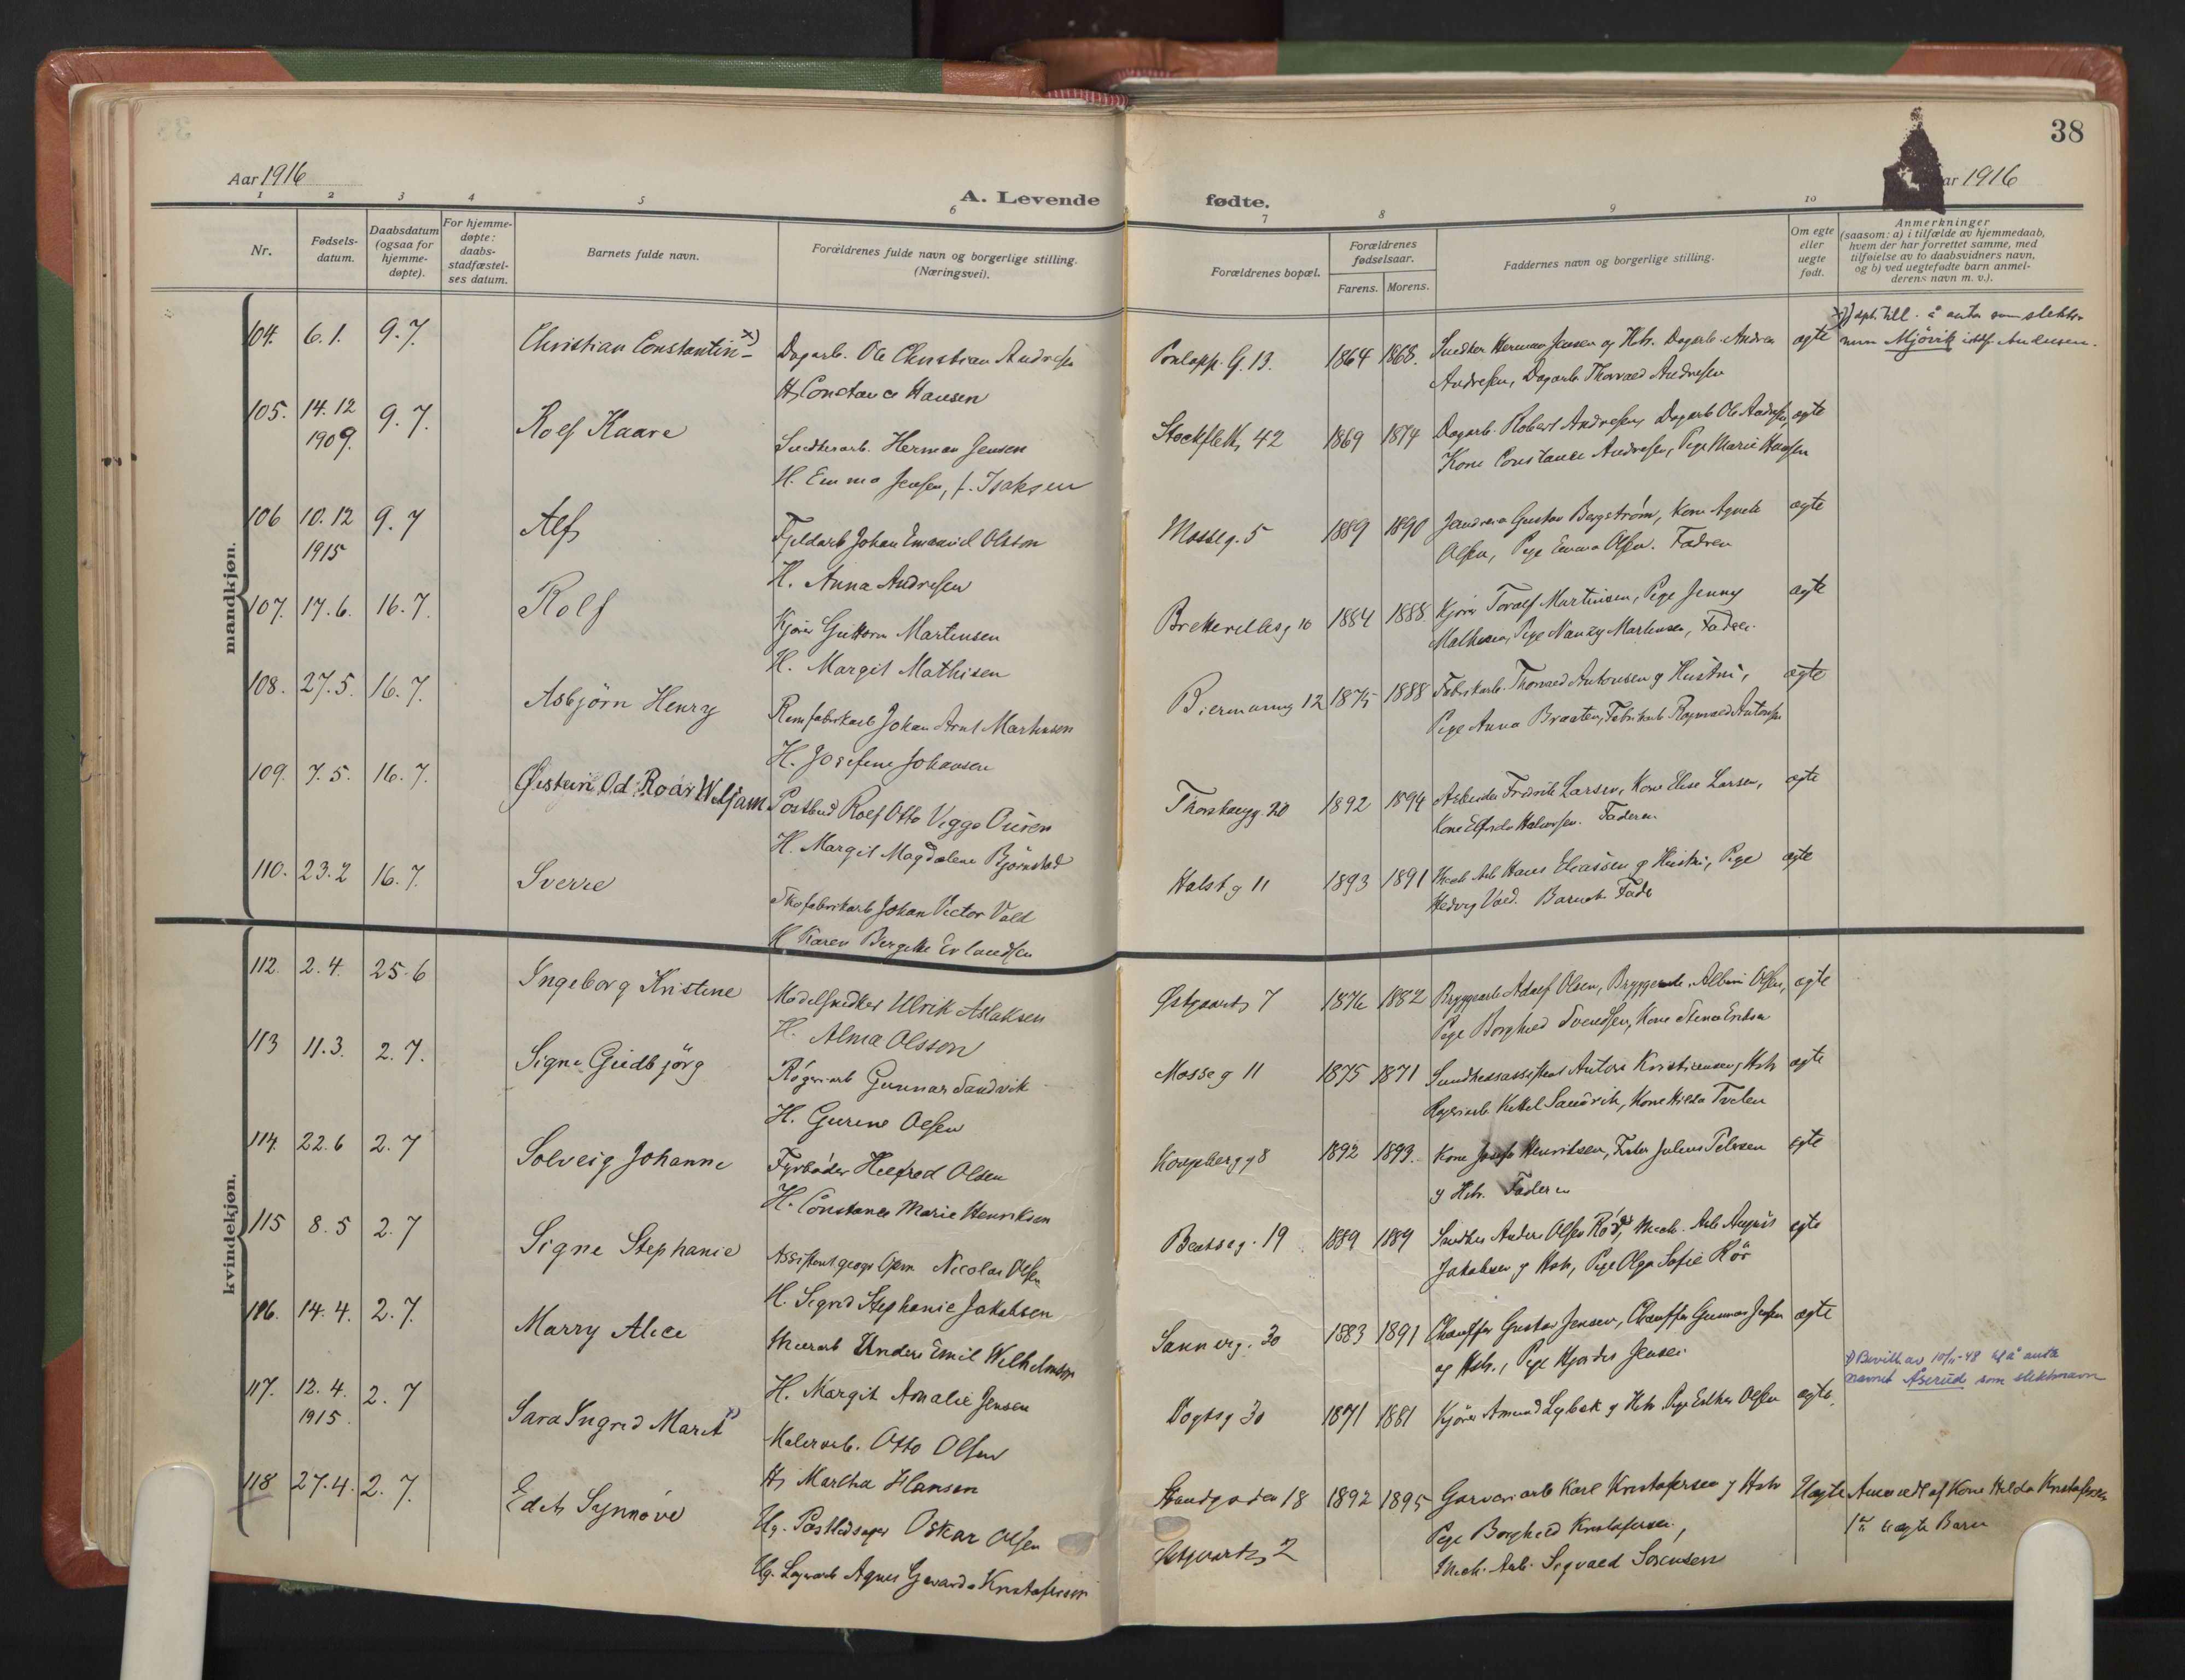 38
Aar 1916
A. Levende fødte.
ar 1916
1 2 3 4 5 6 7 8 9 10
Nr.
Fødsels-
datum.
Daabsdatum
(ogsaa for
hjemme-
døpte).
For hjemme-
døpte:
daabs-
stadfæstel-
ses datum.
Barnets fulde navn.
Forældrenes fulde navn og borgerlige stilling.
(Næringsvei).
Forældrenes bopæl.
Forældrenes
fødselsaar.
Farens. Morens.
Faddernes navn og borgerlige stilling.
Om egte
eller
uegte
født.
Anmerkninger
(saasom: a) i tilfælde av hjemmedaab,
hvem der har forrettet samme, med
tilføielse av to daabsvidners navn,
og b) ved uegtefødte barn anmel-
derens navn m. v.).
mandkjøn.
104. 6.1. 9.7. Christian Constantin x) Dagarb. Ole Christian Andresen
H. Constance Hansen
G. 13. 1864 1868. Snedker Herman Jensen og Hstr. Dagarb. Andreas
Andresen, Dagarb. Thorvald Andresen
egte
x) till. å anta som slekts-
navn Mjörik istdf. Andresen.
105. 14.12 9.7. Rolf Kaare Snedkerarb. Herman Jensen
1909.
H. Emma Jensen, f. Isaksen
Stockfleths 42 1869 1874 Dagarb. Robert Andresen, Dagarb Ole Andresen, egte
Kone Constance Andresen, Pige Marie Hansen
106 10.12 9.7 Alf Fjeldarb Johan Emanuel Olsson
1915
H. Anna Andresen
Mosseg. 5 1889 1890 Gustav Bergström, Kone Agnete egte
Olsen, Pige Emma Olsen. Fadren
107. 17.6. 16.7. Rolf Kjører Guttorm Martinsen
H. Margit Mathisen
Brettevillesg 10 1884 1888. Kjører Toralf Martinsen, Pige Jenny egte
Mathisen, Pige Nancy Martinsen, Fadren.
108. 27.5. 16.7. Asbjørn Henry Remfabrikarb Johan Arnt Martinsen
H. Josefine Johansen
Biermannsg 12 1875 1888 Fabrikarb. Thorvald Antonsen og Hustru, egte
Pige Anna Braaten, Fabrikarb Ragnvald Antonsen
109. 7.5. 16.7. Øistein Od Roar Wiljam Postbud Rolf Otto Viggo Ouren
H. Margit Magdalene Bjørnstad
Thorshaugg. 20 1892 1894 Fredrik Larsen, Kone Elise Larsen, egte
Kone Elfrida Halvorsen. Faderen
110. 23.2 16.7. Sverre Skofabrikarb Johan Victor Vold
H Karen Bergitte Erlandsen
Halstg 11 1893 1891 Mek Arb Hans Eliassen og Hustru, Pige egte
Hedvig Vold. Barnets Fader
kvindekjøn.
112. 2.4. 25.6 Ingeborg Kristine Modelsnedker Ulrik Aslaksen
H. Alma Olsson
Østgaardsg 7 1876 1882 Bryggearb Adolf Olsen, Bryggearb. Albin Olsen, egte
Pige Borghild Svendsen, Kone Stina Eriksen
113 11.3. 2.7. Signe Gudbjörg Røgeriarb Gunnar Sandvik
H. Gurine Olsen
Mosseg 11 1875 1871 Sundhedsassistent Anton Kristiansen og Hstr egte
Røgeriarb Kittel Sandvik, Kone Hilda Tvelen
114. 22.6 2.7 Solveig Johanne Fyrbøder Helfred Olsen
H. Constance Marie Henriksen
Kongsbergg 8 1892 1893. Kone Josefa Henriksen, Julius Petersen egte
og Hstr. Faderen
115 8.5 2.7 Signe Stephanie Assistent geogr Opm Nicolai Olsen
H. Sigrid Stephanie Jakobsen
Bentseg. 19 1889 1889 Snedker Anders Olsen Röd, Mek. Arb August egte
Jakobsen og Hstr, Pige Olga Sofie Rör
116. 14.4. 2.7. Marry Alice Murarb Anders Emil Wilhelmsen
H. Margit Amalie Jensen
Sannerg. 30 1883 1891 Chauffør Gustav Jensen, Chauffør Gunnar Jensen egte
og Hstr., Pige Hjørdis Jensen
117. 12.4. 2.7 Sara Ingrid Marit x) Malerarb. Otto Olsen
1915.
H. Martha Hansen
Vogtsg 30 1871 1881 Kjører Amund Lybek og Hstr. Pige Esther Olsen egte.
x) Bevill. av 10/11-48 til å anta
navnet Åserud som slektsnavn
118 27.4. 2.7. Edith Synnøve Ug. Postledsager Oskar Olsen
Ug. Lagerarb Agnes Gevarda Kristofersen
Strandgaden 18 1892 1895 Garveriarb Karl Kristofersen og Hstr Uegte Anmeldt af Kone Hilda Kristofersen
2 Pige Borghild Kristofersen, 1ste uegte Barn
Mek. Arb. Sigvald Sørensen